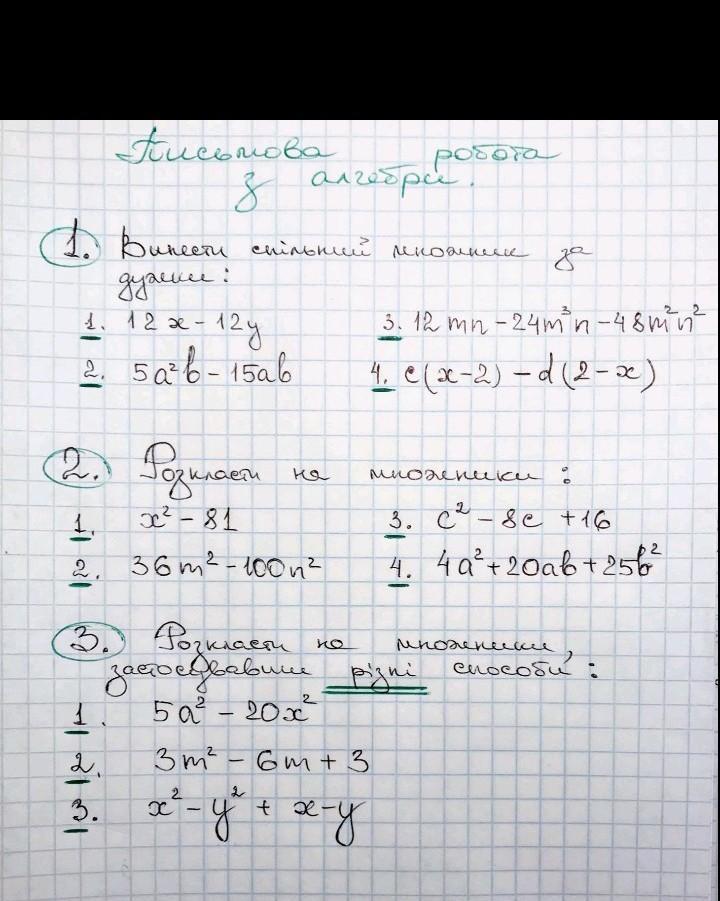 Письмова робота
з алгебри.
1. Винести спільний множник за
дужки:
1. 12x - 12y
3. 12mn - 24m³n - 48m²n²
2. 5a²b - 15ab
4. c(x-2) - d(2-x)
2. Розкласти на множники:
1. x² - 81
3. c² - 8c + 16
2. 36m² - 100n²
4. 4a² + 20ab + 25b²
3. Розкласти на множники,
застосувавши різні способи:
1. 5a² - 20x²
2. 3m² - 6m + 3
3. x² - y² + x - y